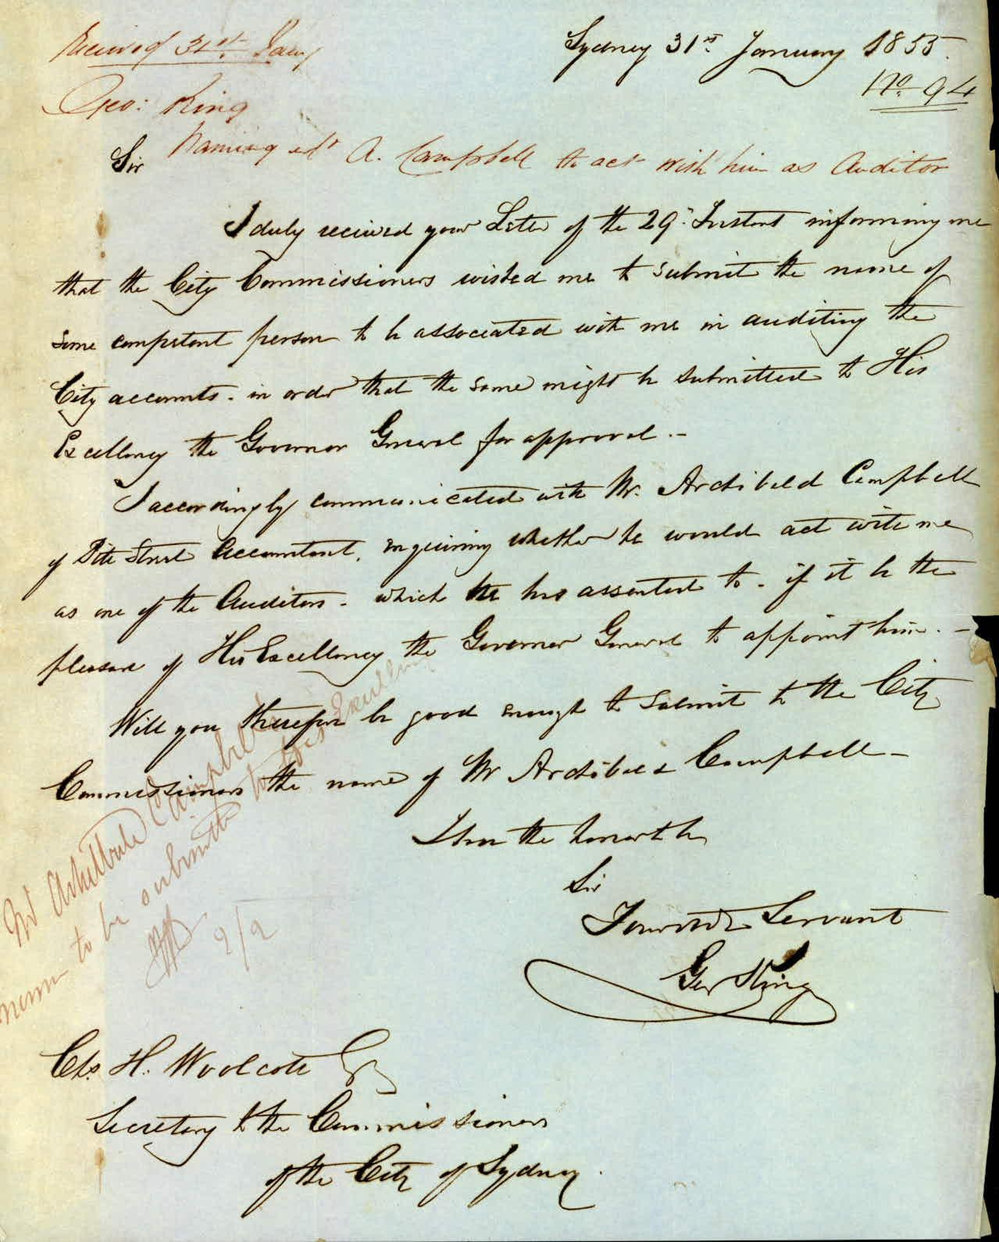 Received 31st Jany
Sydney 31st January 1855.
No. 94
Geo: King
Naming A. Campbell to act with him as Auditor
Sir
I duly received your Letter of the 29th Instant informing me
that the City Commissioners wished me to submit the name of
some competent person to be associated with me in auditing the
City accounts - in order that the same might be submitted to His
Excellency the Governor General for approval. -
I accordingly communicated with Mr. Archibald Campbell
of Pitt Street Accountant, enquiring whether he would act with me
as one of the Auditors - which he has assented to - if it be the
pleasure of His Excellency the Governor General to appoint him. -
Will you therefore be good enough to submit to the City
Commissioners the name of Mr Archibald Campbell -
I have the honor to be
Sir
Your obdt Servant
Geo King
Mr Archibald Campbell's
name to be submitted to His Excellency
2/2
Chs. H. Woolcott Esq
Secretary to the Commissioners
of the City of Sydney.